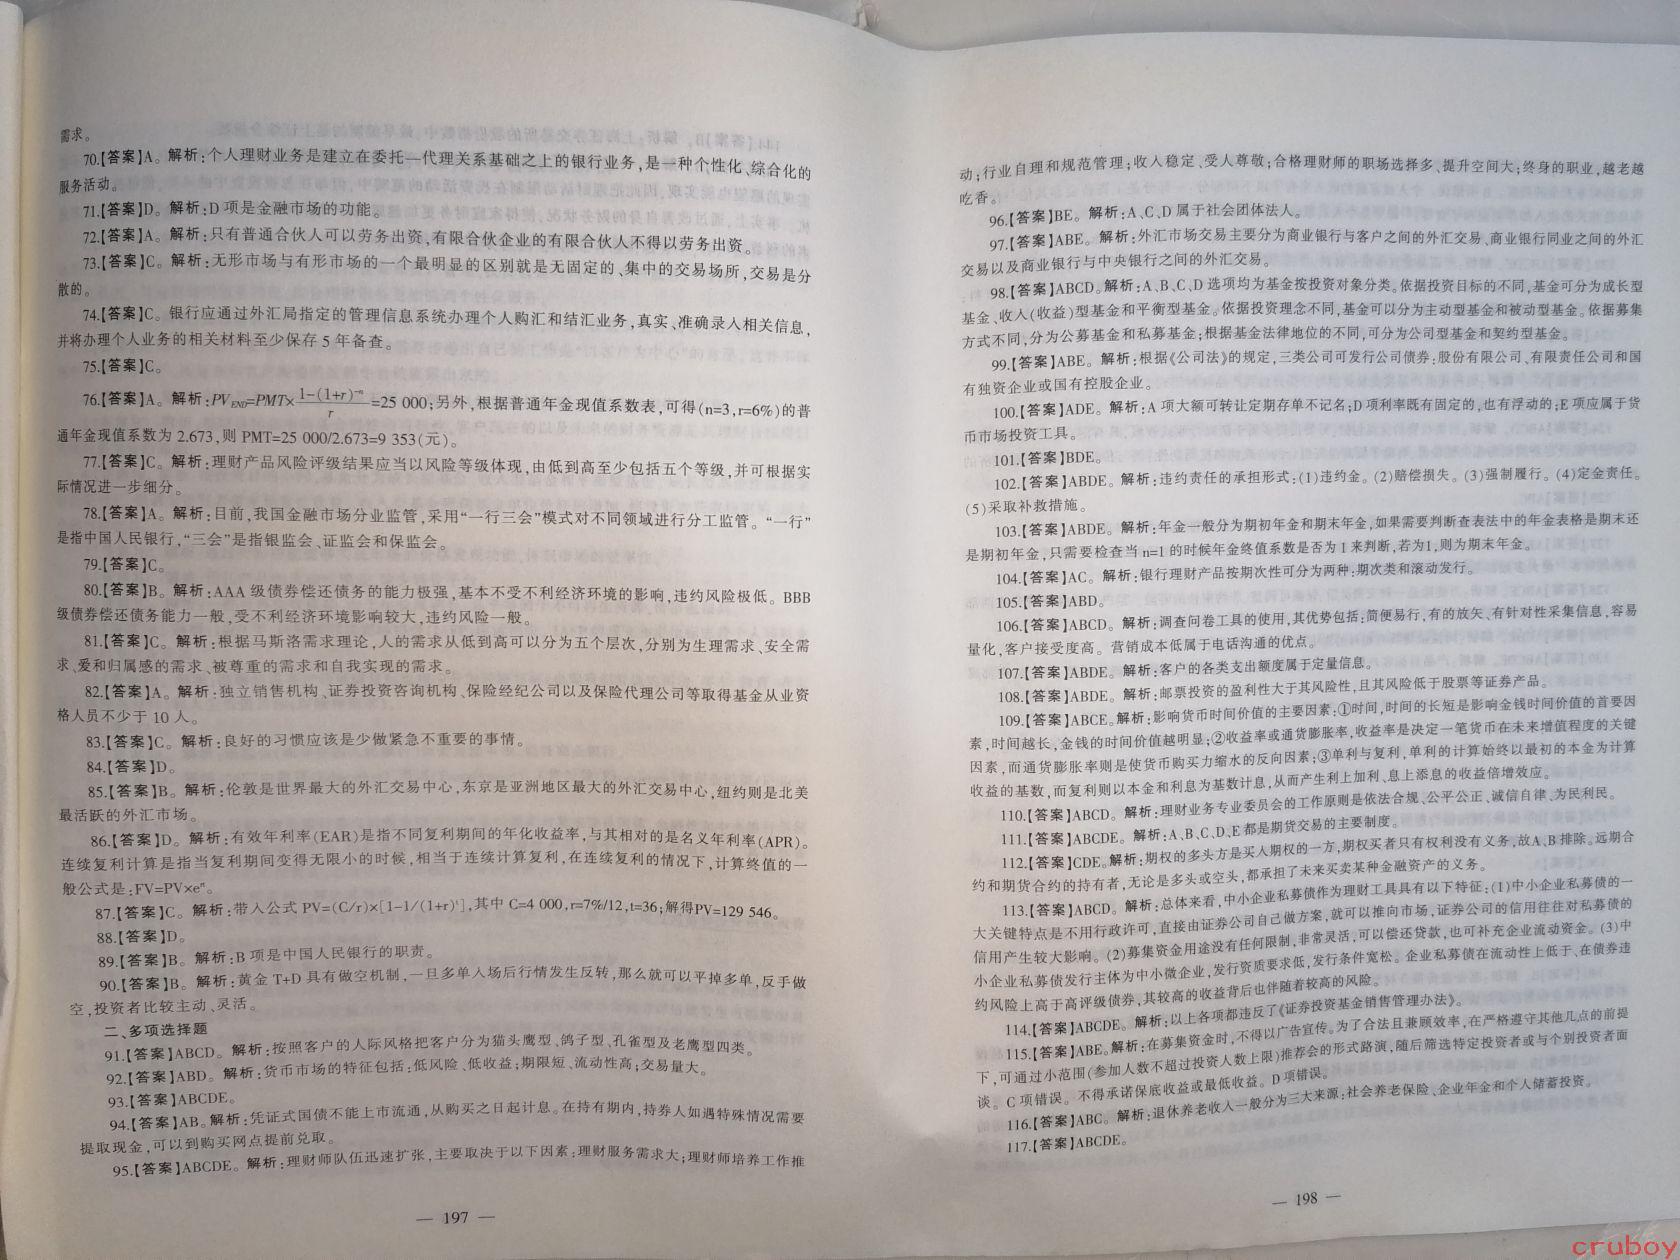 需求。
70.【答案】A。解析:个人理财业务是建立在委托—代理关系基础之上的银行业务,是一种个性化、综合化的
服务活动。
71.【答案】D。解析:D项是金融市场的功能。
72.【答案】A。解析:只有普通合伙人可以劳务出资,有限合伙企业的有限合伙人不得以劳务出资。
73.【答案】C。解析:无形市场与有形市场的一个最明显的区别就是无固定的、集中的交易场所,交易是分
散的。
74.【答案】C。银行应通过外汇局指定的管理信息系统办理个人购汇和结汇业务,真实、准确录入相关信息,
并将办理个人业务的相关材料至少保存 5 年备查。
75.【答案】C。
76.【答案】A。解析:PV_END=PMT×(1-(1+r)^-n)/r=25 000;另外,根据普通年金现值系数表,可得(n=3,r=6%)的普
通年金现值系数为 2.673,则 PMT=25 000/2.673=9 353(元)。
77.【答案】C。解析:理财产品风险评级结果应当以风险等级体现,由低到高至少包括五个等级,并可根据实
际情况进一步细分。
78.【答案】A。解析:目前,我国金融市场分业监管,采用“一行三会”模式对不同领域进行分工监管。“一行”
是指中国人民银行,“三会”是指银监会、证监会和保监会。
79.【答案】C。
80.【答案】B。解析:AAA 级债券偿还债务的能力极强,基本不受不利经济环境的影响,违约风险极低。BBB
级债券偿还债务能力一般,受不利经济环境影响较大,违约风险一般。
81.【答案】C。解析:根据马斯洛需求理论,人的需求从低到高可以分为五个层次,分别为生理需求、安全需
求、爱和归属感的需求、被尊重的需求和自我实现的需求。
82.【答案】A。解析:独立销售机构、证券投资咨询机构、保险经纪公司以及保险代理公司等取得基金从业资
格人员不少于 10 人。
83.【答案】C。解析:良好的习惯应该是少做紧急不重要的事情。
84.【答案】D。
85.【答案】B。解析:伦敦是世界最大的外汇交易中心,东京是亚洲地区最大的外汇交易中心,纽约则是北美
最活跃的外汇市场。
86.【答案】D。解析:有效年利率(EAR)是指不同复利期间的年化收益率,与其相对的是名义年利率(APR)。
连续复利计算是指当复利期间变得无限小的时候,相当于连续计算复利,在连续复利的情况下,计算终值的一
般公式是:FV=PV×e^rt。
87.【答案】C。解析:带入公式 PV=(C/r)×[1-1/(1+r)^t],其中 C=4 000,r=7%/12,t=36;解得PV=129 546。
88.【答案】D。
89.【答案】B。解析:B项是中国人民银行的职责。
90.【答案】B。解析:黄金 T+D 具有做空机制,一旦多单入场后行情发生反转,那么就可以平掉多单,反手做
空,投资者比较主动、灵活。
二、多项选择题
91.【答案】ABCD。解析:按照客户的人际风格把客户分为猫头鹰型、鸽子型、孔雀型及老鹰型四类。
92.【答案】ABD。解析:货币市场的特征包括:低风险、低收益;期限短、流动性高;交易量大。
93.【答案】ABCDE。
94.【答案】AB。解析:凭证式国债不能上市流通,从购买之日起计息。在持有期内,持券人如遇特殊情况需要
提取现金,可以到购买网点提前兑取。
95.【答案】ABCDE。解析:理财师队伍迅速扩张,主要取决于以下因素:理财服务需求大;理财师培养工作推
— 197 —
动;行业自理和规范管理;收入稳定、受人尊敬;合格理财师的职场选择多、提升空间大;终身的职业,越老越
吃香。
96.【答案】BE。解析:A、C、D属于社会团体法人。
97.【答案】ABE。解析:外汇市场交易主要分为商业银行与客户之间的外汇交易、商业银行同业之间的外汇
交易以及商业银行与中央银行之间的外汇交易。
98.【答案】ABCD。解析:A、B、C、D选项均为基金按投资对象分类。依据投资目标的不同,基金可分为成长型
基金、收入(收益)型基金和平衡型基金。依据投资理念不同,基金可以分为主动型基金和被动型基金。依据募集
方式不同,分为公募基金和私募基金;根据基金法律地位的不同,可分为公司型基金和契约型基金。
99.【答案】ABE。解析:根据《公司法》的规定,三类公司可发行公司债券:股份有限公司、有限责任公司和国
有独资企业或国有控股企业。
100.【答案】ADE。解析:A项大额可转让定期存单不记名;D项利率既有固定的,也有浮动的;E项应属于货
币市场投资工具。
101.【答案】BDE。
102.【答案】ABDE。解析:违约责任的承担形式:(1)违约金。(2)赔偿损失。(3)强制履行。(4)定金责任。
(5)采取补救措施。
103.【答案】ABDE。解析:年金一般分为期初年金和期末年金,如果需要判断查表法中的年金表格是期末还
是期初年金,只需要检查当 n=1 的时候年金终值系数是否为 1 来判断,若为1,则为期末年金。
104.【答案】AC。解析:银行理财产品按期次性可分为两种:期次类和滚动发行。
105.【答案】ABD。
106.【答案】ABCD。解析:调查问卷工具的使用,其优势包括:简便易行,有的放矢、有针对性采集信息,容易
量化,客户接受度高。营销成本低属于电话沟通的优点。
107.【答案】ABDE。解析:客户的各类支出额度属于定量信息。
108.【答案】ABDE。解析:邮票投资的盈利性大于其风险性,且其风险低于股票等证券产品。
109.【答案】ABCE。解析:影响货币时间价值的主要因素:①时间,时间的长短是影响金钱时间价值的首要因
素,时间越长,金钱的时间价值越明显;②收益率或通货膨胀率,收益率是决定一笔货币在未来增值程度的关键
因素,而通货膨胀率则是使货币购买力缩水的反向因素;③单利与复利,单利的计算始终以最初的本金为计算
收益的基数,而复利则以本金和利息为基数计息,从而产生利上加利、息上添息的收益倍增效应。
110.【答案】ABCD。解析:理财业务专业委员会的工作原则是依法合规、公平公正、诚信自律、为民利民。
111.【答案】ABCDE。解析:A、B、C、D、E都是期货交易的主要制度。
112.【答案】CDE。解析:期权的多头方是买入期权的一方,期权买者只有权利没有义务,故A、B排除。远期合
约和期货合约的持有者,无论是多头或空头,都承担了未来买卖某种金融资产的义务。
113.【答案】ABCD。解析:总体来看,中小企业私募债作为理财工具具有以下特征:(1)中小企业私募债的一
大关键特点是不用行政许可,直接由证券公司自己做方案,就可以推向市场,证券公司的信用往往对私募债的
信用产生较大影响。(2)募集资金用途没有任何限制、非常灵活,可以偿还贷款,也可补充企业流动资金。(3)中
小企业私募债发行主体为中小微企业,发行资质要求低,发行条件宽松。企业私募债在流动性上低于、在债券违
约风险上高于高评级债券,其较高的收益背后也伴随着较高的风险。
114.【答案】ABCDE。解析:以上各项都违反了《证券投资基金销售管理办法》。
115.【答案】ABE。解析:在募集资金时,不得以广告宣传。为了合法且兼顾效率,在严格遵守其他几点的前提
下,可通过小范围(参加人数不超过投资人数上限)推荐会的形式路演,随后筛选特定投资者或与个别投资者面
谈。C项错误。不得承诺保底收益或最低收益。D项错误。
116.【答案】ABC。解析:退休养老收入一般分为三大来源:社会养老保险、企业年金和个人储蓄投资。
117.【答案】ABCDE。
— 198 —
cruboy